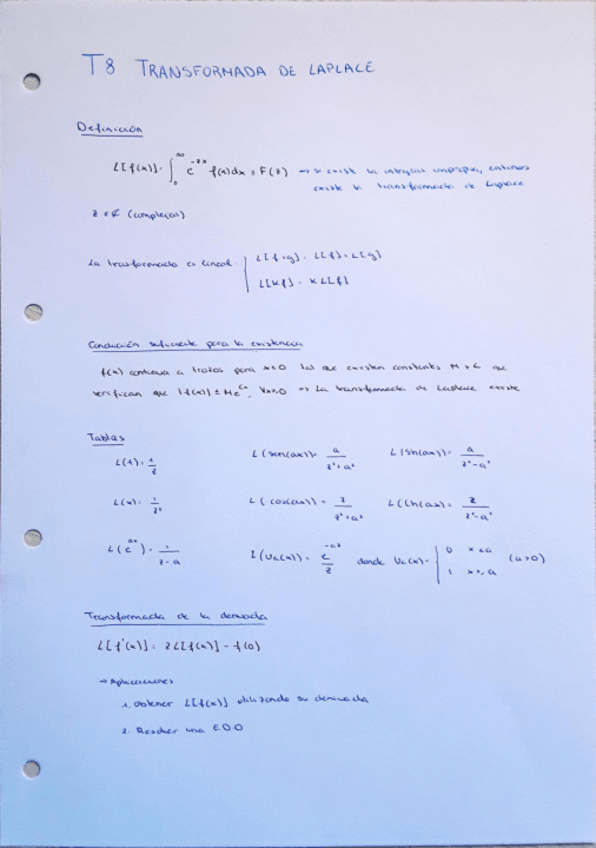 T8 TRANSFORMADA DE LAPLACE
Definición
L[f(x)] = ∫₀^∞ e^{-zx} f(x)dx = F(z) → si existe la integral impropia, entonces
existe la transformada de Laplace
z ∈ ℂ (complejos)
La transformada es lineal: { L[f+g] = L[f]+L[g]
L[kf] = kL[f]
Condición suficiente para la existencia
f(x) continua a trozos para x≥0 tal que existen constantes M y C que
verifican que |f(x)| ≤ Me^{Cx}, ∀x≥0 ⇒ La transformada de Laplace existe
Tablas
L(1) = 1/z L(sen(ax)) = a/(z²+a²) L(Sh(ax)) = a/(z²-a²)
L(x) = 1/z² L(cos(ax)) = z/(z²+a²) L(Ch(ax)) = z/(z²-a²)
L(e^{ax}) = 1/(z-a) L(Ua(x)) = e^{-az}/z donde Ua(x) = { 0 x<a (a>0)
1 x≥a
Transformada de la derivada
L[f'(x)] = zL[f(x)] - f(0)
→ Aplicaciones
1. Obtener L[f(x)] utilizando su derivada
2. Resolver una EDO